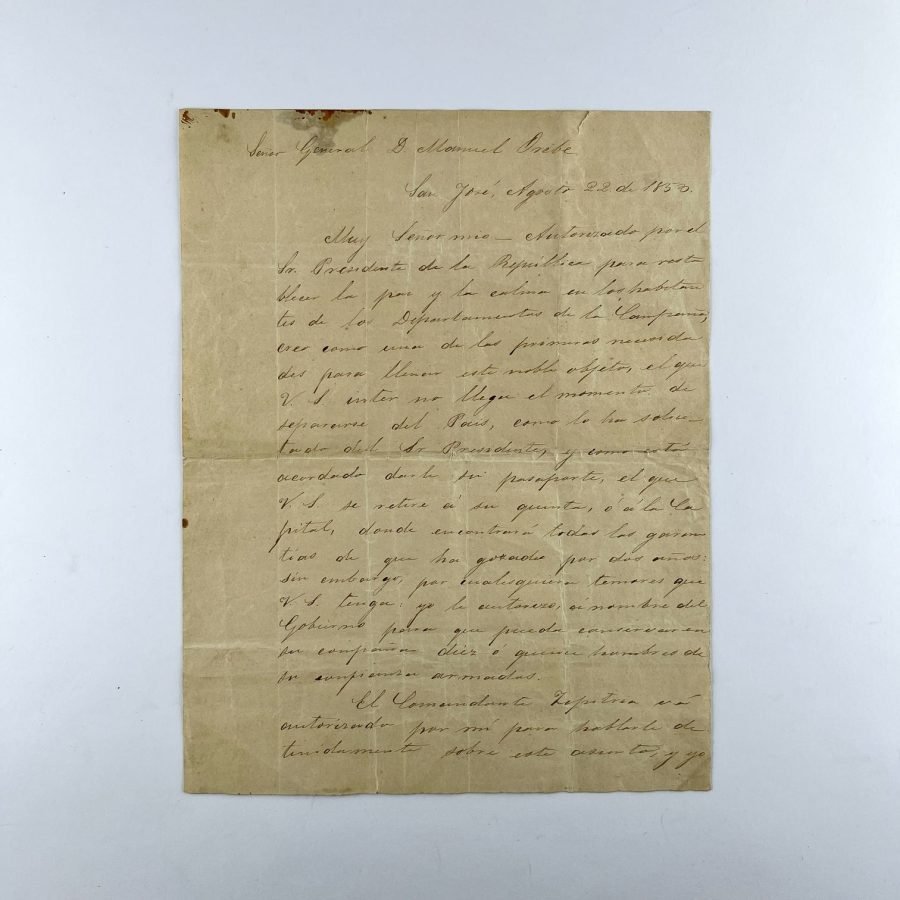 Señor General D. Manuel Oribe
San José, Agosto 22 de 1853.
Muy Señor mio — Autorizado por el
Sr. Presidente de la República para resta
blecer la paz y la calma en los habitan
tes de los Departamentos de la Campaña,
creo como una de las primeras necesida
des para llenar este noble objeto, el que
V. S. inter no llegue el momento de
separarse del Pais, como lo ha solici-
tado del Sr Presidente, y como está
acordado darle su pasaporte, el que
V. S. se retire á su quinta, ó á la Ca
pital, donde encontrará todas las garan
tias de que ha gozado por dos años:
sin embargo, por cualesquiera temores que
V. S. tenga: yo le autorizo, á nombre del
Gobierno para que pueda conservar en
su compañia diez ó quince hombres de
su confianza armados.
El Comandante vá
autorizado por mi para hablarle de
tenidamente sobre este asunto, y yo